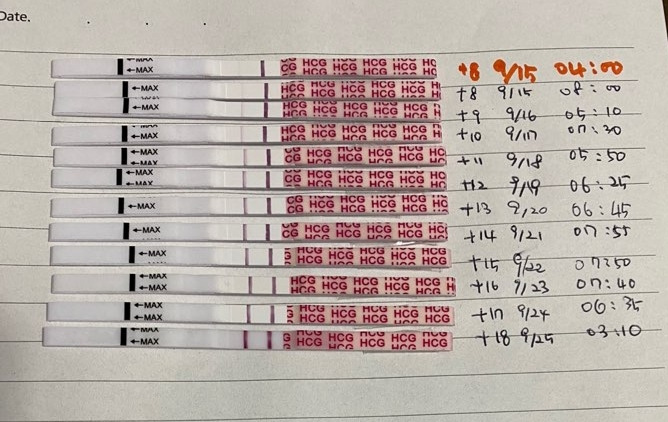 Date.
←MAX HCG HCG HCG HCG +8 9/15 04:00
←MAX HCG HCG HCG HCG +8 9/15 08:00
←MAX HCG HCG HCG HCG +9 9/16 05:10
←MAX HCG HCG HCG HCG +10 9/17 07:30
←MAX HCG HCG HCG HCG +11 9/18 05:50
←MAX HCG HCG HCG HCG +12 9/19 06:25
←MAX HCG HCG HCG HCG HCG +13 9/20 06:45
←MAX HCG HCG HCG HCG HCG +14 9/21 07:55
←MAX HCG HCG HCG HCG HCG +15 9/22 07:50
←MAX HCG HCG HCG HCG HCG +16 9/23 07:40
←MAX HCG HCG HCG HCG HCG +17 9/24 06:35
←MAX HCG HCG HCG HCG HCG +18 9/25 03:10